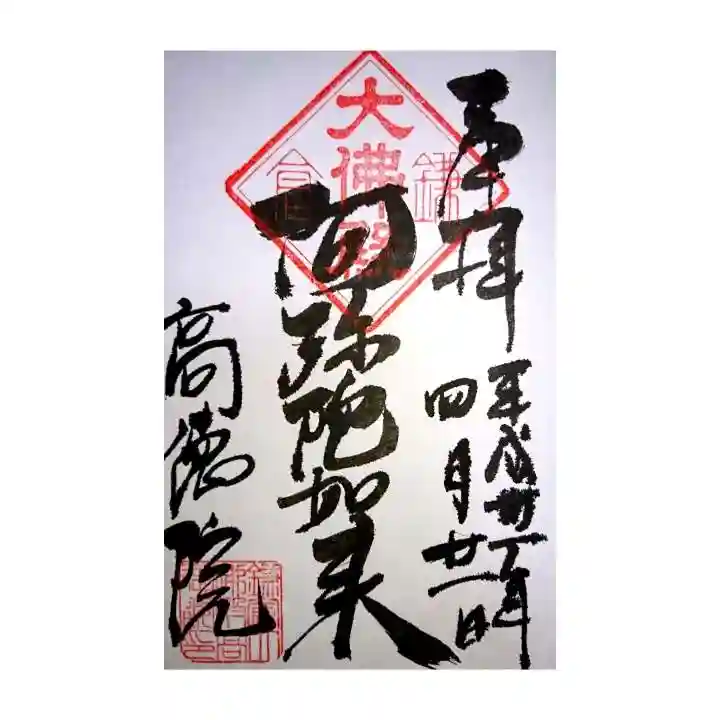 奉拝
平成卅一年
四月廿一日
大佛殿
鎌倉
阿弥陀如来
高徳院